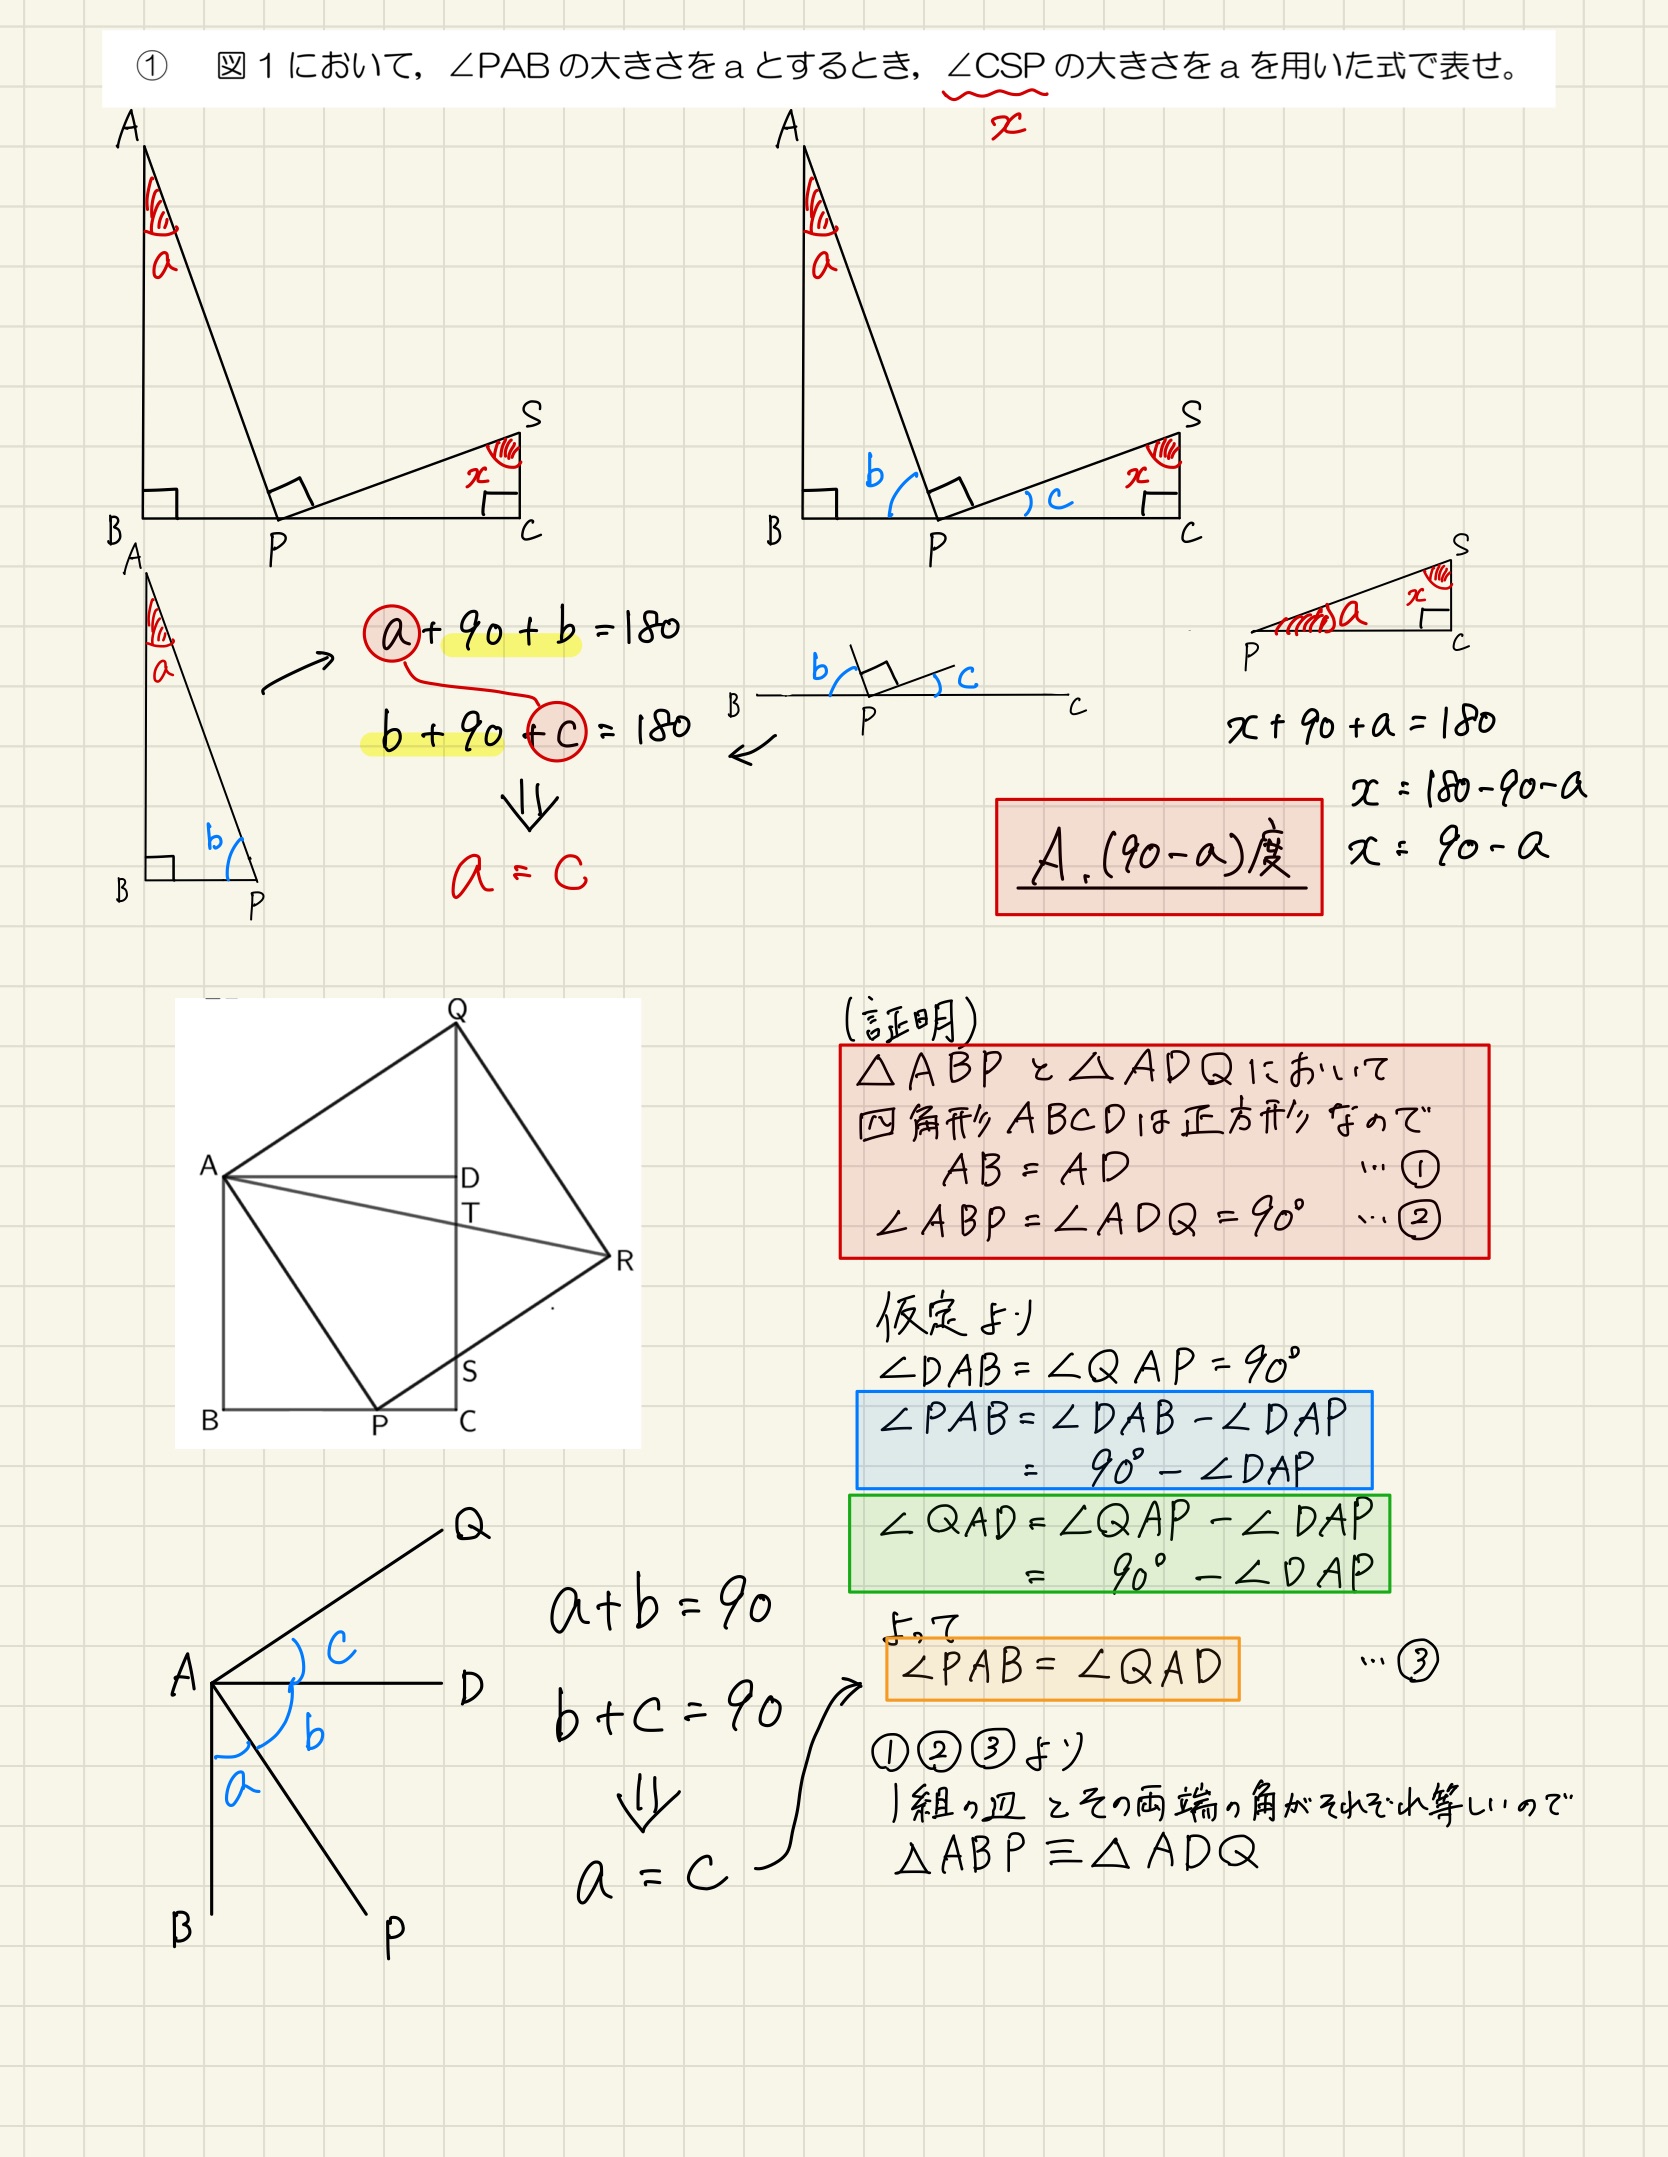 ① 図1において，∠PABの大きさをaとするとき，∠CSPの大きさをaを用いた式で表せ。
x
A
a
S
x
B
P
C
A
a
b
S
x
c
B
P
C
A
a
b
B
P
a + 90 + b = 180
b + 90 + c = 180
a = c
b
c
B
P
C
S
x
a
P
C
x + 90 + a = 180
x = 180-90-a
x = 90-a
A. (90-a)度
Q
A
D
T
R
S
B
P
C
(証明)
△ABPと△ADQにおいて
四角形ABCDは正方形なので
AB = AD …①
∠ABP = ∠ADQ = 90° …②
仮定より
∠DAB = ∠QAP = 90°
∠PAB = ∠DAB - ∠DAP
= 90° - ∠DAP
∠QAD = ∠QAP - ∠DAP
= 90° - ∠DAP
よって
∠PAB = ∠QAD …③
①②③より
1組の辺とその両端の角がそれぞれ等しいので
△ABP ≡ △ADQ
Q
c
A
D
b
a
B
P
a+b = 90
b+c = 90
a = c